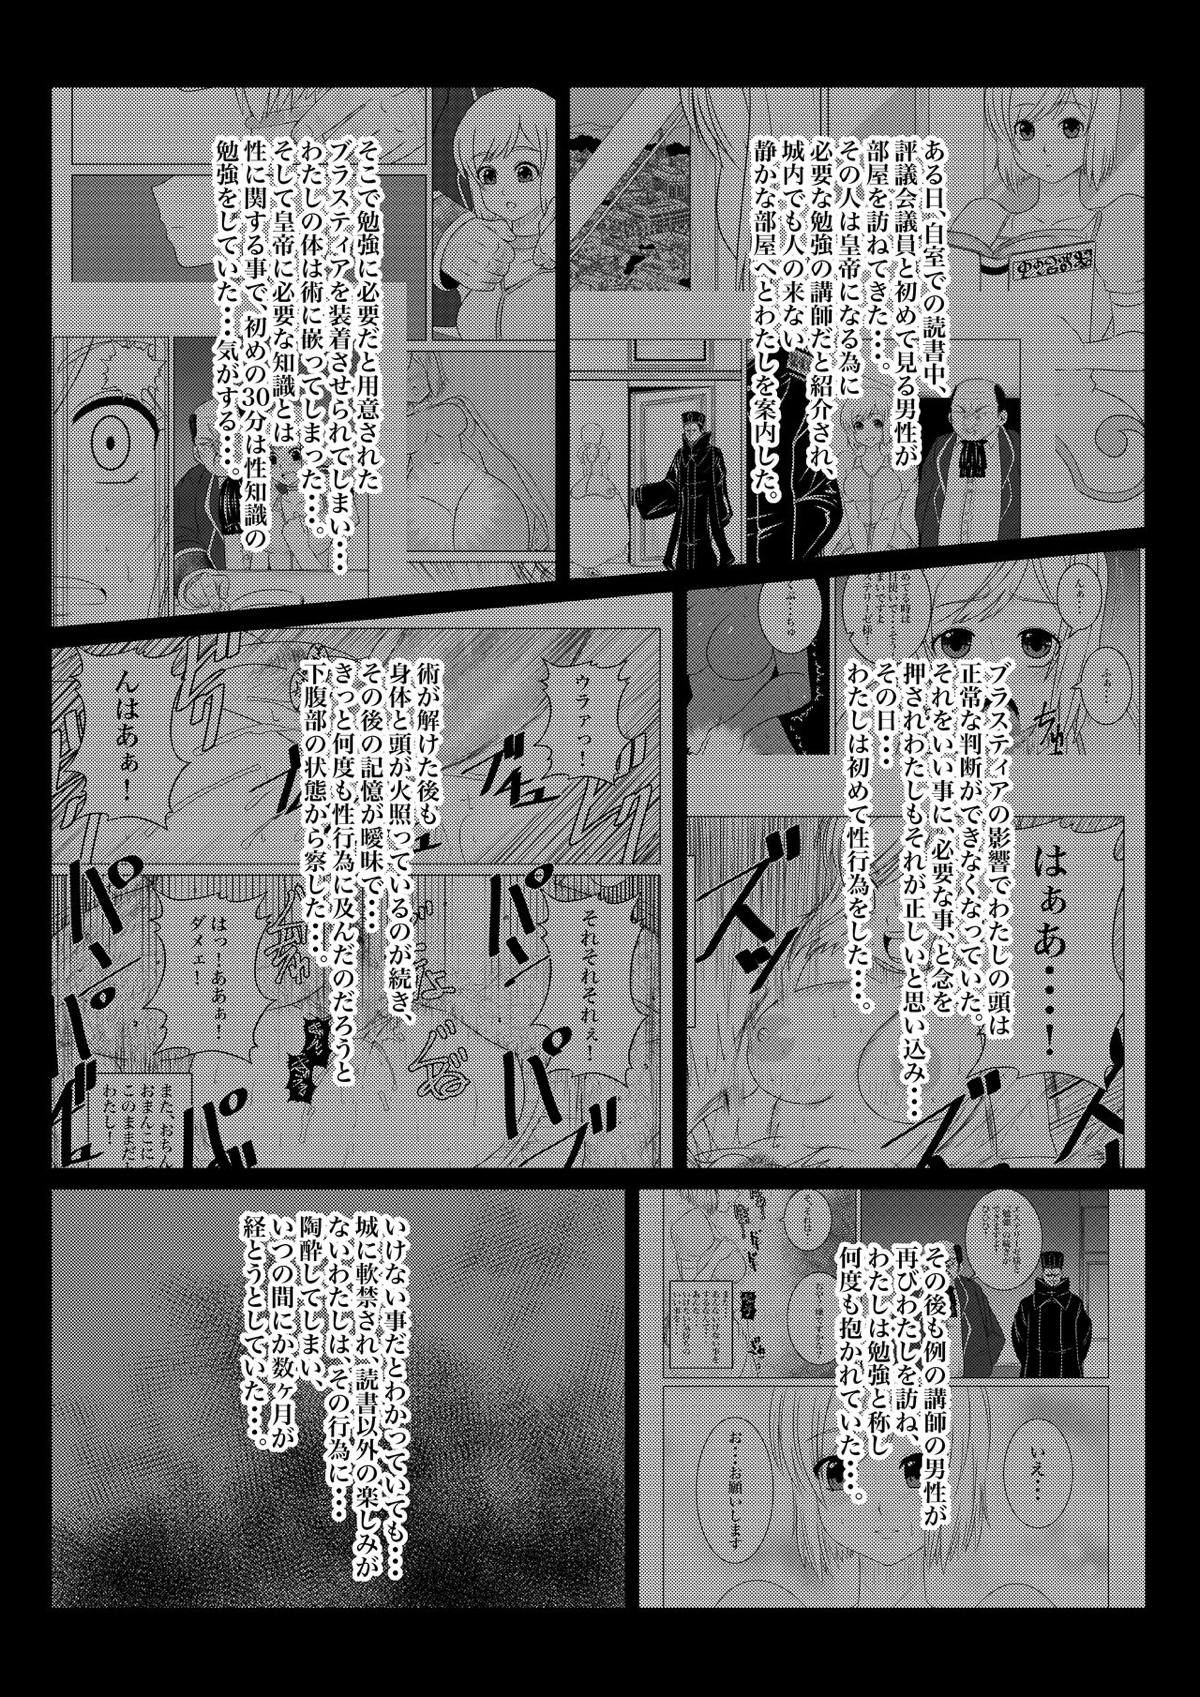 ある日、自室での読書中、
評議会議員と初めて見る男性が
部屋を訪ねてきた・・・。
その人は皇帝になる為に
必要な勉強の講師だと紹介され、
城内でも人の来ない
静かな部屋へとわたしを案内した。
そこで勉強に必要だと用意された
ブラスティアを装着させられてしまい・・・
わたしの体は術に嵌ってしまった・・・。
そして皇帝に必要な知識とは
性に関する事で、初めの30分は性知識の
勉強をしていた・・・気がする・・・。
んぁ・・・
ふぁ・・・
ブラスティアの影響でわたしの頭は
正常な判断ができなくなっていた。
それをいい事に、必要な事、と念を
押されわたしもそれが正しいと思い込み・・・
その日・・・
わたしは初めて性行為をした・・・。
はぁあ・・・・！
術が解けた後も
身体と頭が火照っているのが続き、
その後の記憶が曖昧で・・・
きっと何度も性行為に及んだのだろうと
下腹部の状態から察した・・・。
ウラァっ！
んはあぁ！
それそれそれぇ！
はっ！ああぁ！
ダメェ！
また、おちん
おまんこに
このままだ
わたし！
その後も例の講師の男性が
再びわたしを訪ね、
わたしは勉強と称し
何度も抱かれていた・・・。
いえ・・・
お・・・お願いします
いけない事だとわかっていても・・・
城に軟禁され、読書以外の楽しみが
ないわたしは、その行為に・・・
陶酔してしまい、
いつの間にか数ヶ月が
経とうとしていた・・・。